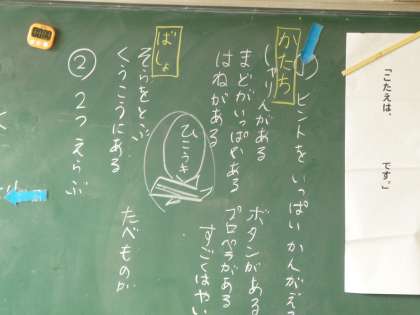 「こたえは、　　　です。」
かたち
① ヒントを いっぱい かんがえる
しゃりんがある　ボタンがある
まどがいっぱいある　プロペラがある
はねがある　すごくはやい
ひこうき
ばしょ
そらをとぶ
くうこうにある　たべものが
② 2つ えらぶ